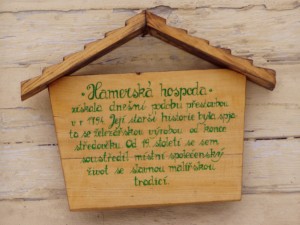 Hamerská hospoda
získala dnešní podobu přestavbou
v r. 1794. Její starší historie byla spja-
ta se železářskou výrobou od konce
středověku. Od 19. století se sem
soustředil místní společenský
život se slavnou malířskou
tradicí.